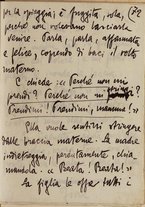 per la pioggia; è fuggita, sola, (72
perché non volevano lasciarla
venire. Parla, parla, affannata
e felice, coprendo di baci, il volto
materno.
E chiede: « Perché non mi
prendi? Perché non mi
Prendimi! Prendimi, mamma! »
Ella vuole sentirsi stringere
dalle braccia materne. La madre
indietreggia, perdutamente, chia
mandola: « Beata! Beata! »
La figlia le offre tutti i